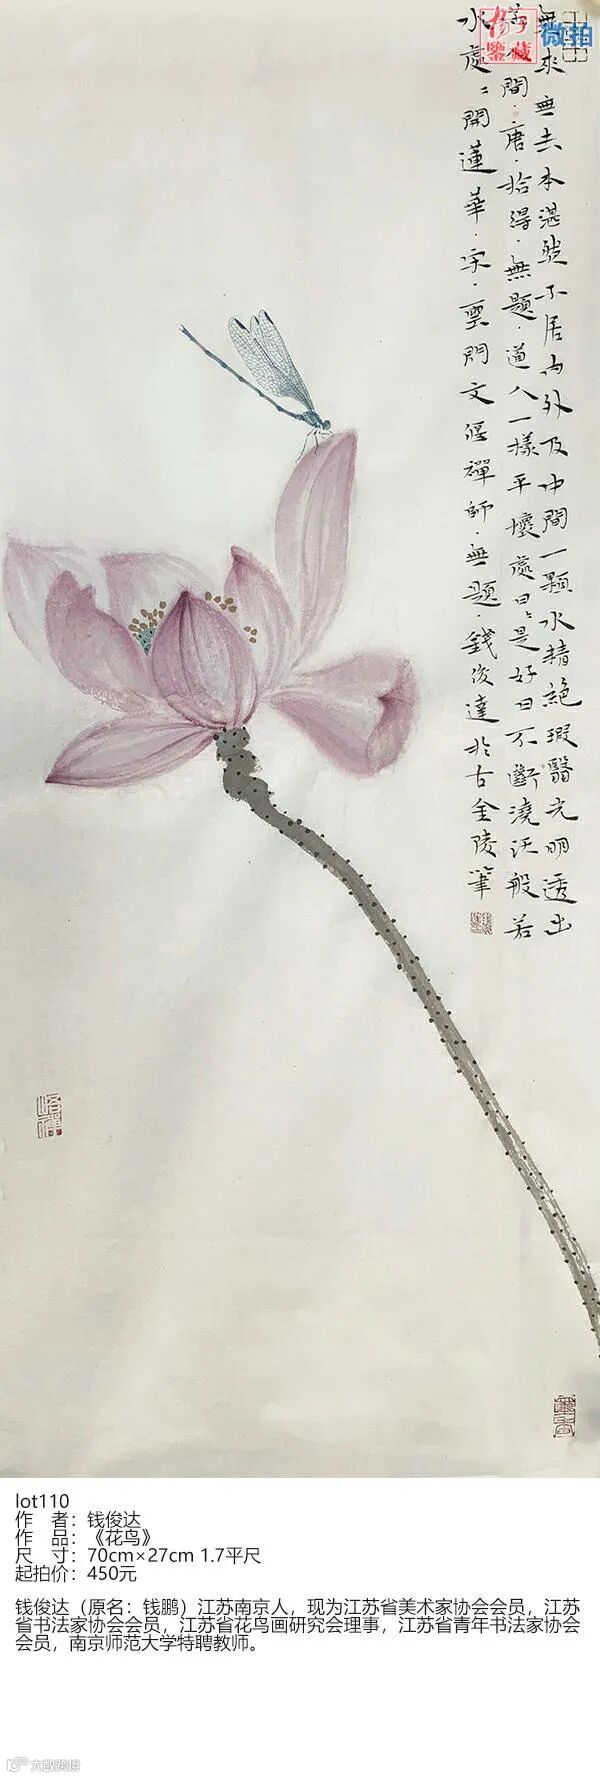 扬子
鑒藏
微拍
無來無去本湛然不居內外及中間一顆水精絕瑕翳光明透出
間·唐·拾得·無題·道人一樣平壞處日〻是好日不斷澆沃般若
水處〻開蓮華·宋·雲門文偃禪師·無題·錢俊達於古金陵筆
lot110
作 者：钱俊达
作 品：《花鸟》
尺 寸：70cm×27cm 1.7平尺
起拍价：450元
钱俊达（原名：钱鹏）江苏南京人，现为江苏省美术家协会会员，江苏
省书法家协会会员，江苏省花鸟画研究会理事，江苏省青年书法家协会
会员，南京师范大学特聘教师。
大数跨境